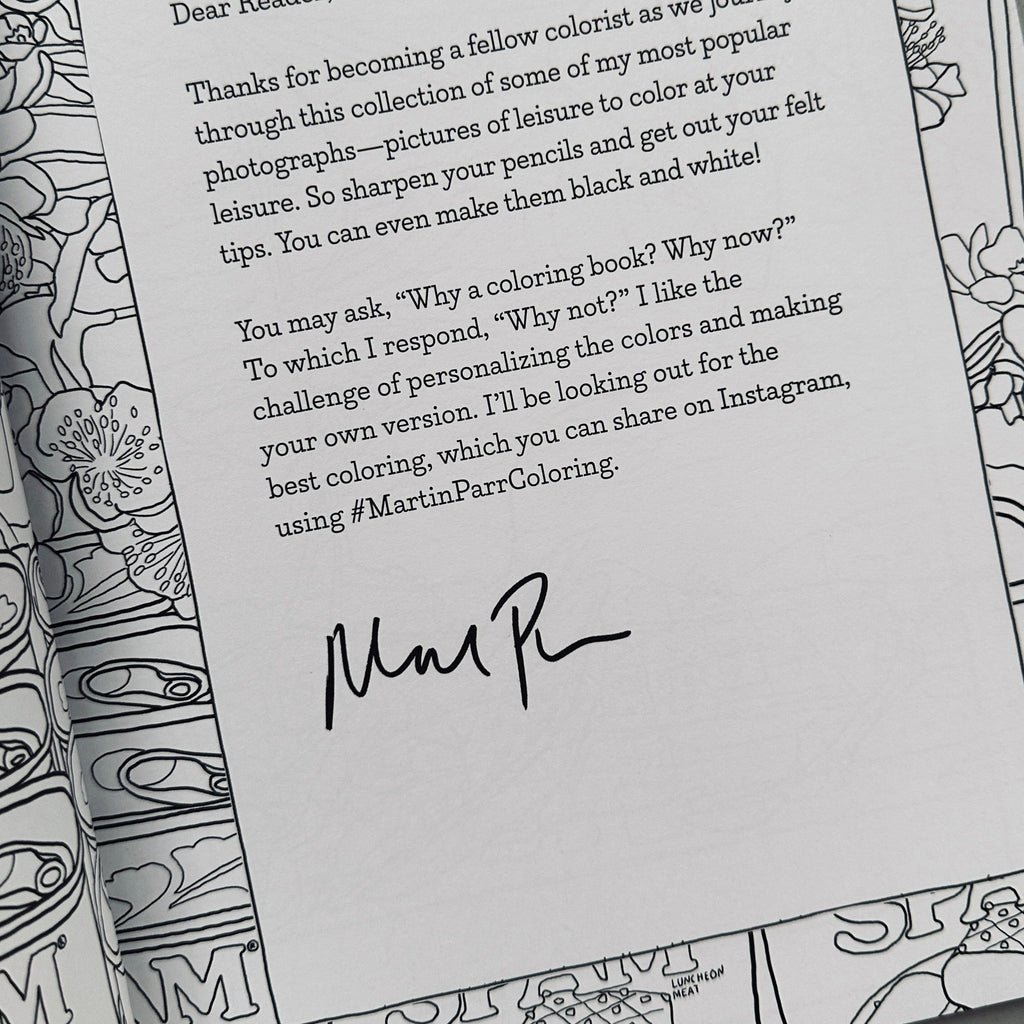 Dear Reader,
Thanks for becoming a fellow colorist as we
through this collection of some of my most popular
photographs—pictures of leisure to color at your
leisure. So sharpen your pencils and get out your felt
tips. You can even make them black and white!
You may ask, “Why a coloring book? Why now?”
To which I respond, “Why not?” I like the
challenge of personalizing the colors and making
your own version. I’ll be looking out for the
best coloring, which you can share on Instagram,
using #MartinParrColoring.
M®
M®
SPAM
LUNCHEON
MEAT
SPA